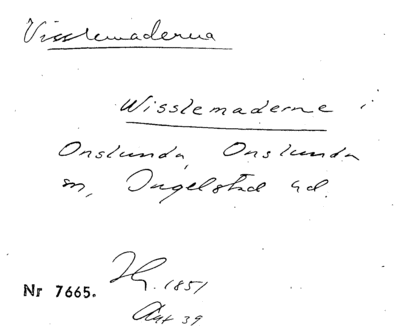 Visslemaderna
Wisslemaderne i
Onslunda, Onslunda
sn, Ingelstad hd.
Hy. 1851
Nr 7665.
Akt 39